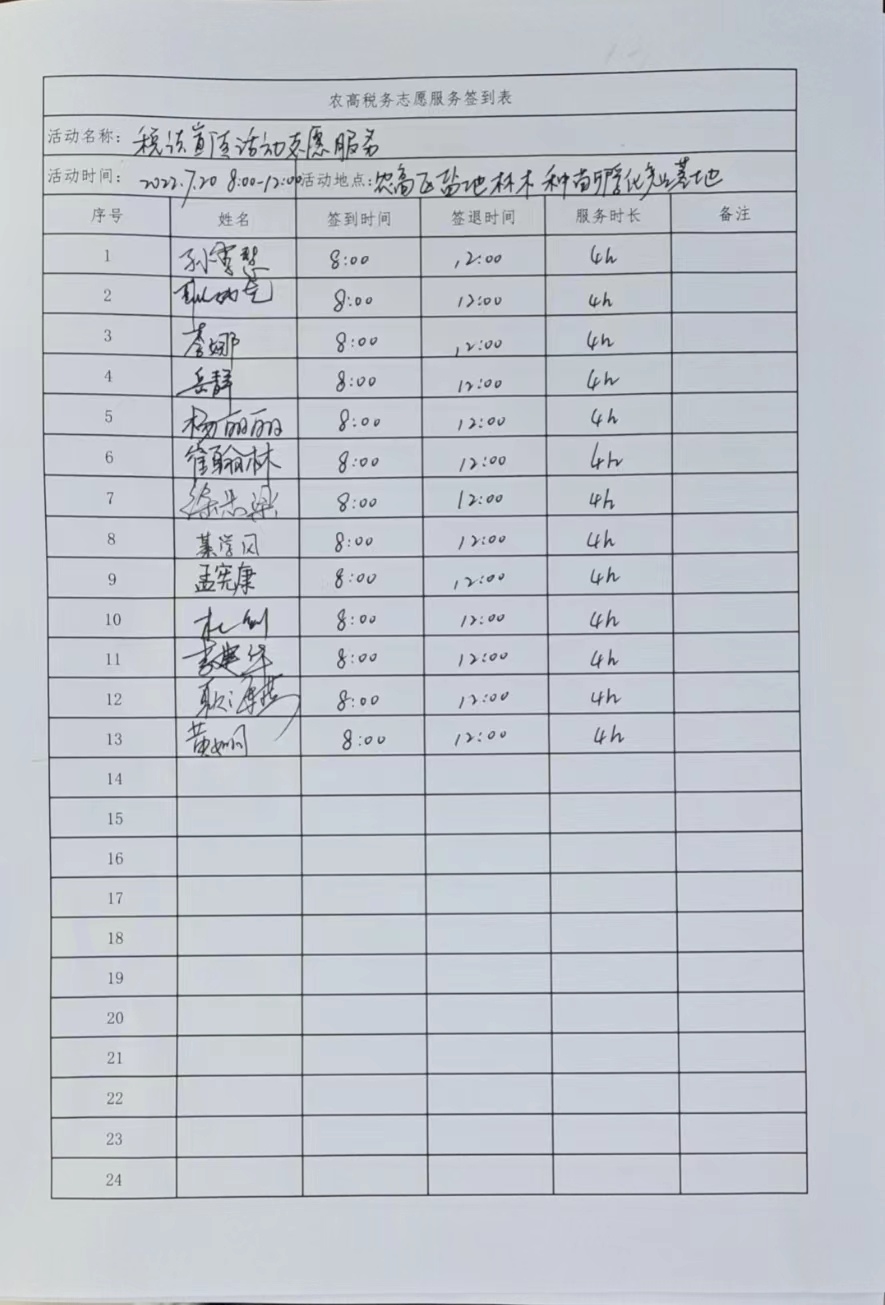 农高税务志愿服务签到表
活动名称: 税法宣传活动志愿服务
活动时间: 2022.7.20 8:00-12:00 活动地点: 农高区盐地林木种苗孵化基地
序号 姓名 签到时间 签退时间 服务时长 备注
1 孙雪慧 8:00 12:00 4h
2 8:00 12:00 4h
3 李娜 8:00 12:00 4h
4 岳静 8:00 12:00 4h
5 杨丽丽 8:00 12:00 4h
6 崔翰林 8:00 12:00 4h
7 徐 8:00 12:00 4h
8 学 8:00 12:00 4h
9 孟宪康 8:00 12:00 4h
10 杜剑 8:00 12:00 4h
11 李建华 8:00 12:00 4h
12 8:00 12:00 4h
13 黄 8:00 12:00 4h
14
15
16
17
18
19
20
21
22
23
24